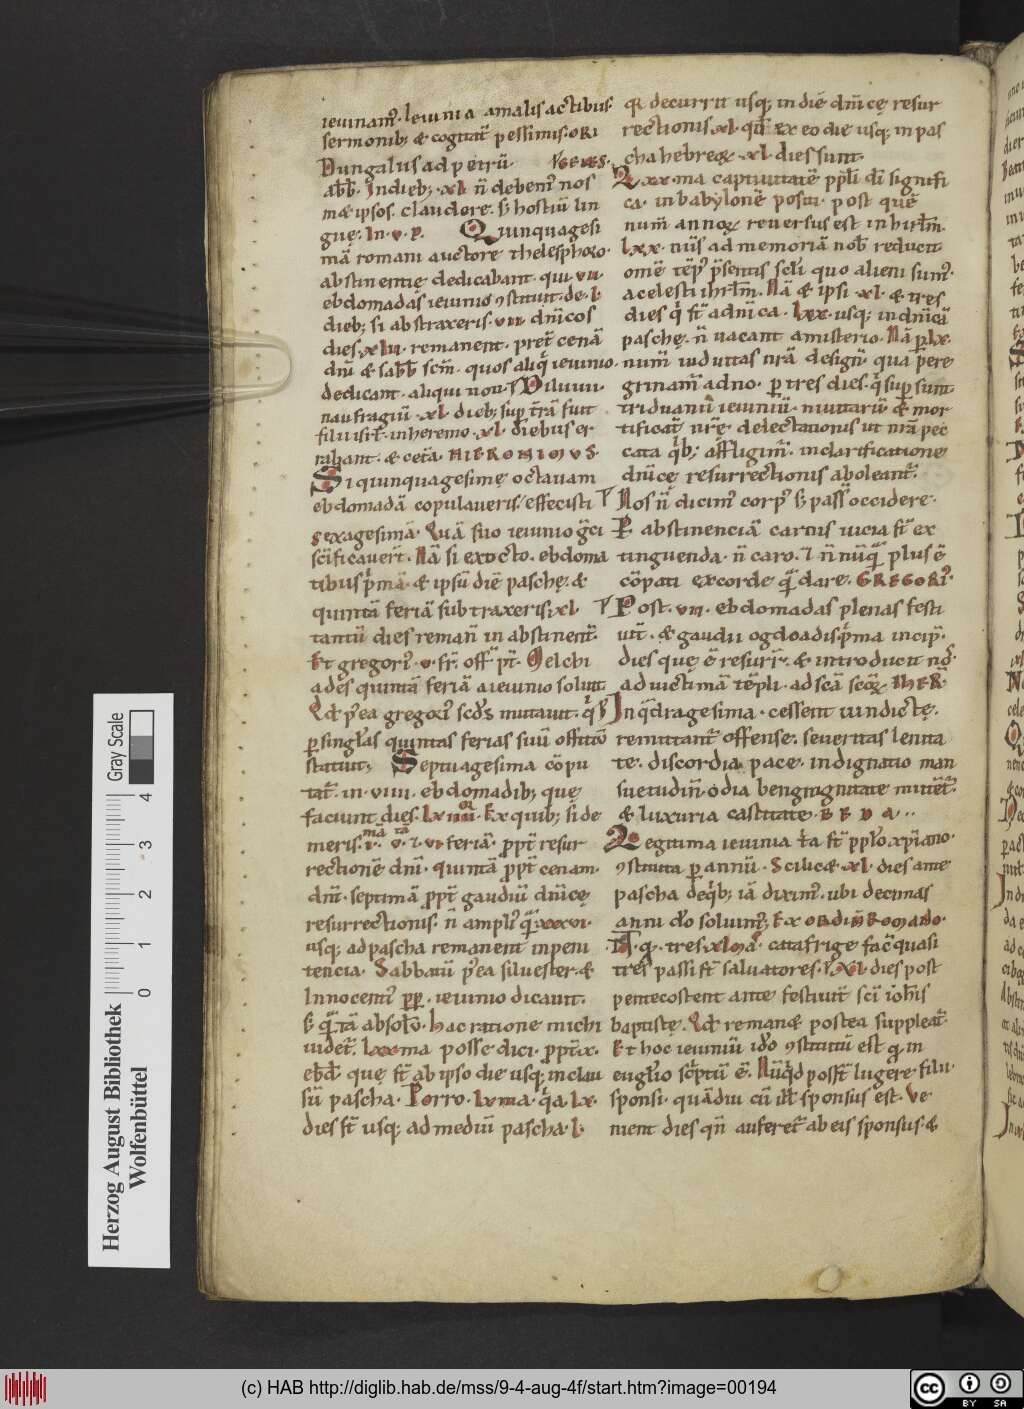 ieiunam᷒. Ieiunia amalis actibus.
sermonib; & cogitat̄ pessimis. ORI
Dungalus ad petrū. GENES.
abb̄. In dieb; xl n̄ debem᷒ nos
m& ipsos claudere. s; hostiū lin
guę. In. v. P. Quinquagesi
mā romani auctore thelesphoro
abstinentię dedicabant. qui vii
ebdomadas ieiunio
dieb; si abstraxeris. vii. dn̄icos
dies. xlii. remanent. cenā
dn̄i & sabb̄ sc̄m. quos ieiunio
dedicant. aliqui non. Diluuii.
naufragiū. xl. dieb; sup t̄rā fuit
filii isrl̄. in heremo. xl. diebus er
rabant. & cet̄a. HIERONIMVS.
Si quinquagesimę octauam
ebdomadā copulaueris, effecisti
sexagesimā. Quā suo ieiunio
sc̄ificauer̄. Nā si ex octo. ebdoma
tibus p̄mā. & ipsū diē paschę. &
quintā feriā subtraxeris. xl
tantū dies reman̄ in abstinent̄.
Et gregori᷒. v. fr̄. off p̄t. Melchi
ades quintā feriā a ieiunio soluit
Qd̄ p̄ea gregori sc̄ds mutauit.
p singl̄as quintas ferias suū offitiū
statuit; Septuagesima cōpu
tat̄. in. viiii. ebdomadib; quę
faciunt dies. lxiiii. Ex quib; si de
meris. i. v. 7. vi feriā. ppt̄ resur
rectionē dn̄i. quintā ppt̄ cenam
dn̄i. septimā ppt̄ gaudiū dn̄icę
resurrectionis. n̄ ampli᷒ xxxvi.
usq; ad pascha remanent in peni
tencia. Sabbatū p̄ea siluester. &
Innocenti᷒ pp. ieiunio dicauit.
absol̄o. hac ratione michi
uidet̄. lxxma posse dici. ppt̄ x.
ebd̄. quę st̄ ab ipso die usq; in clau
sū pascha. Porro. lxma. q̄a. lx.
dies st̄ usq; ad mediū pascha. l.
decurrit usq; in diē dn̄icę resur
rectionis. xl. qd̄ ex eo die usq; in pas
cha hebreoꝝ. xl dies sunt.
Lxxma captiuitatē pp̄li dī signifi
ca. in babylonē positi. post quē
num᷒ annoꝝ reuersus est in hirl̄m.
lxx. nūs ad memoriā nob̄ reducit
omē tēp᷒ p̄sentis scl̄i quo alieni sum᷒.
a celesti ihrl̄m. Nā & ipsi. xl. & tres
dies q̄ st̄ a dn̄ica. lxx. usq; in dn̄icā
paschę. n̄ uacant a misterio. Nā p lx.
num᷒ uiduitas nr̄a design̄. qua pere
grinam᷒ a dn̄o. p tres dies. q̄ sup sunt
triduanū ieiuniū. nuntiatū & mor
tificat̄ nr̄ę. delectationis ut nr̄a pec
cata q̄b; affligim᷒. in clarificatione
dn̄icę resurrectionis aboleant̄.
Nos n̄ dicim᷒ corp᷒ s; pass̄ occidere.
P abstinenciā carnis uicia st̄ ex
tinguenda. n̄ caro. plus ē
cōpati ex corde dare. GREGORI᷒.
Post. vii. ebdomadas plenas festi
uit̄. & gaudii ogdoadis p̄ma incip̄.
dies quę ē resurr̄. & introducit nos.
ad uictimā tēpli. ad scā scōꝝ. IHER̄.
In q̄dragesima. cessent uindictę.
remittant̄ offense. seueritas lenita
te. discordia pace. indignatio man
suetudin̄. odia benignitate
& luxuria castitate. BEDA..
Legitima ieiunia st̄ pplō xp̄iano.
constituta p annū. Scilic& xl. dies ante
pascha deq̄b; iā dixim᷒. ubi decimas
anni dō soluim᷒; Ex ORDIN̄ ROMANO.
tres xlma. catafrige fac̄ quasi
tres passi st̄ saluatores. xl. dies post
pentecosten ante festiuit̄ sc̄i ioh̄is
baptistę. Qd̄ reman& postea suppleat̄.
Et hoc ieiuniū iđo statutū est in
eugl̄io sc̄ptū ē. Nūq̄d poss̄t lugere filii
sponsi. quādiu cū ill̄ sponsus est. Ve
nient dies qn̄ auferet̄ ab eis sponsus. &
Gray Scale
4
3
2
1
0
Herzog August Bibliothek
Wolfenbüttel
(c) HAB http://diglib.hab.de/mss/9-4-aug-4f/start.htm?image=00194
cc
BY SA